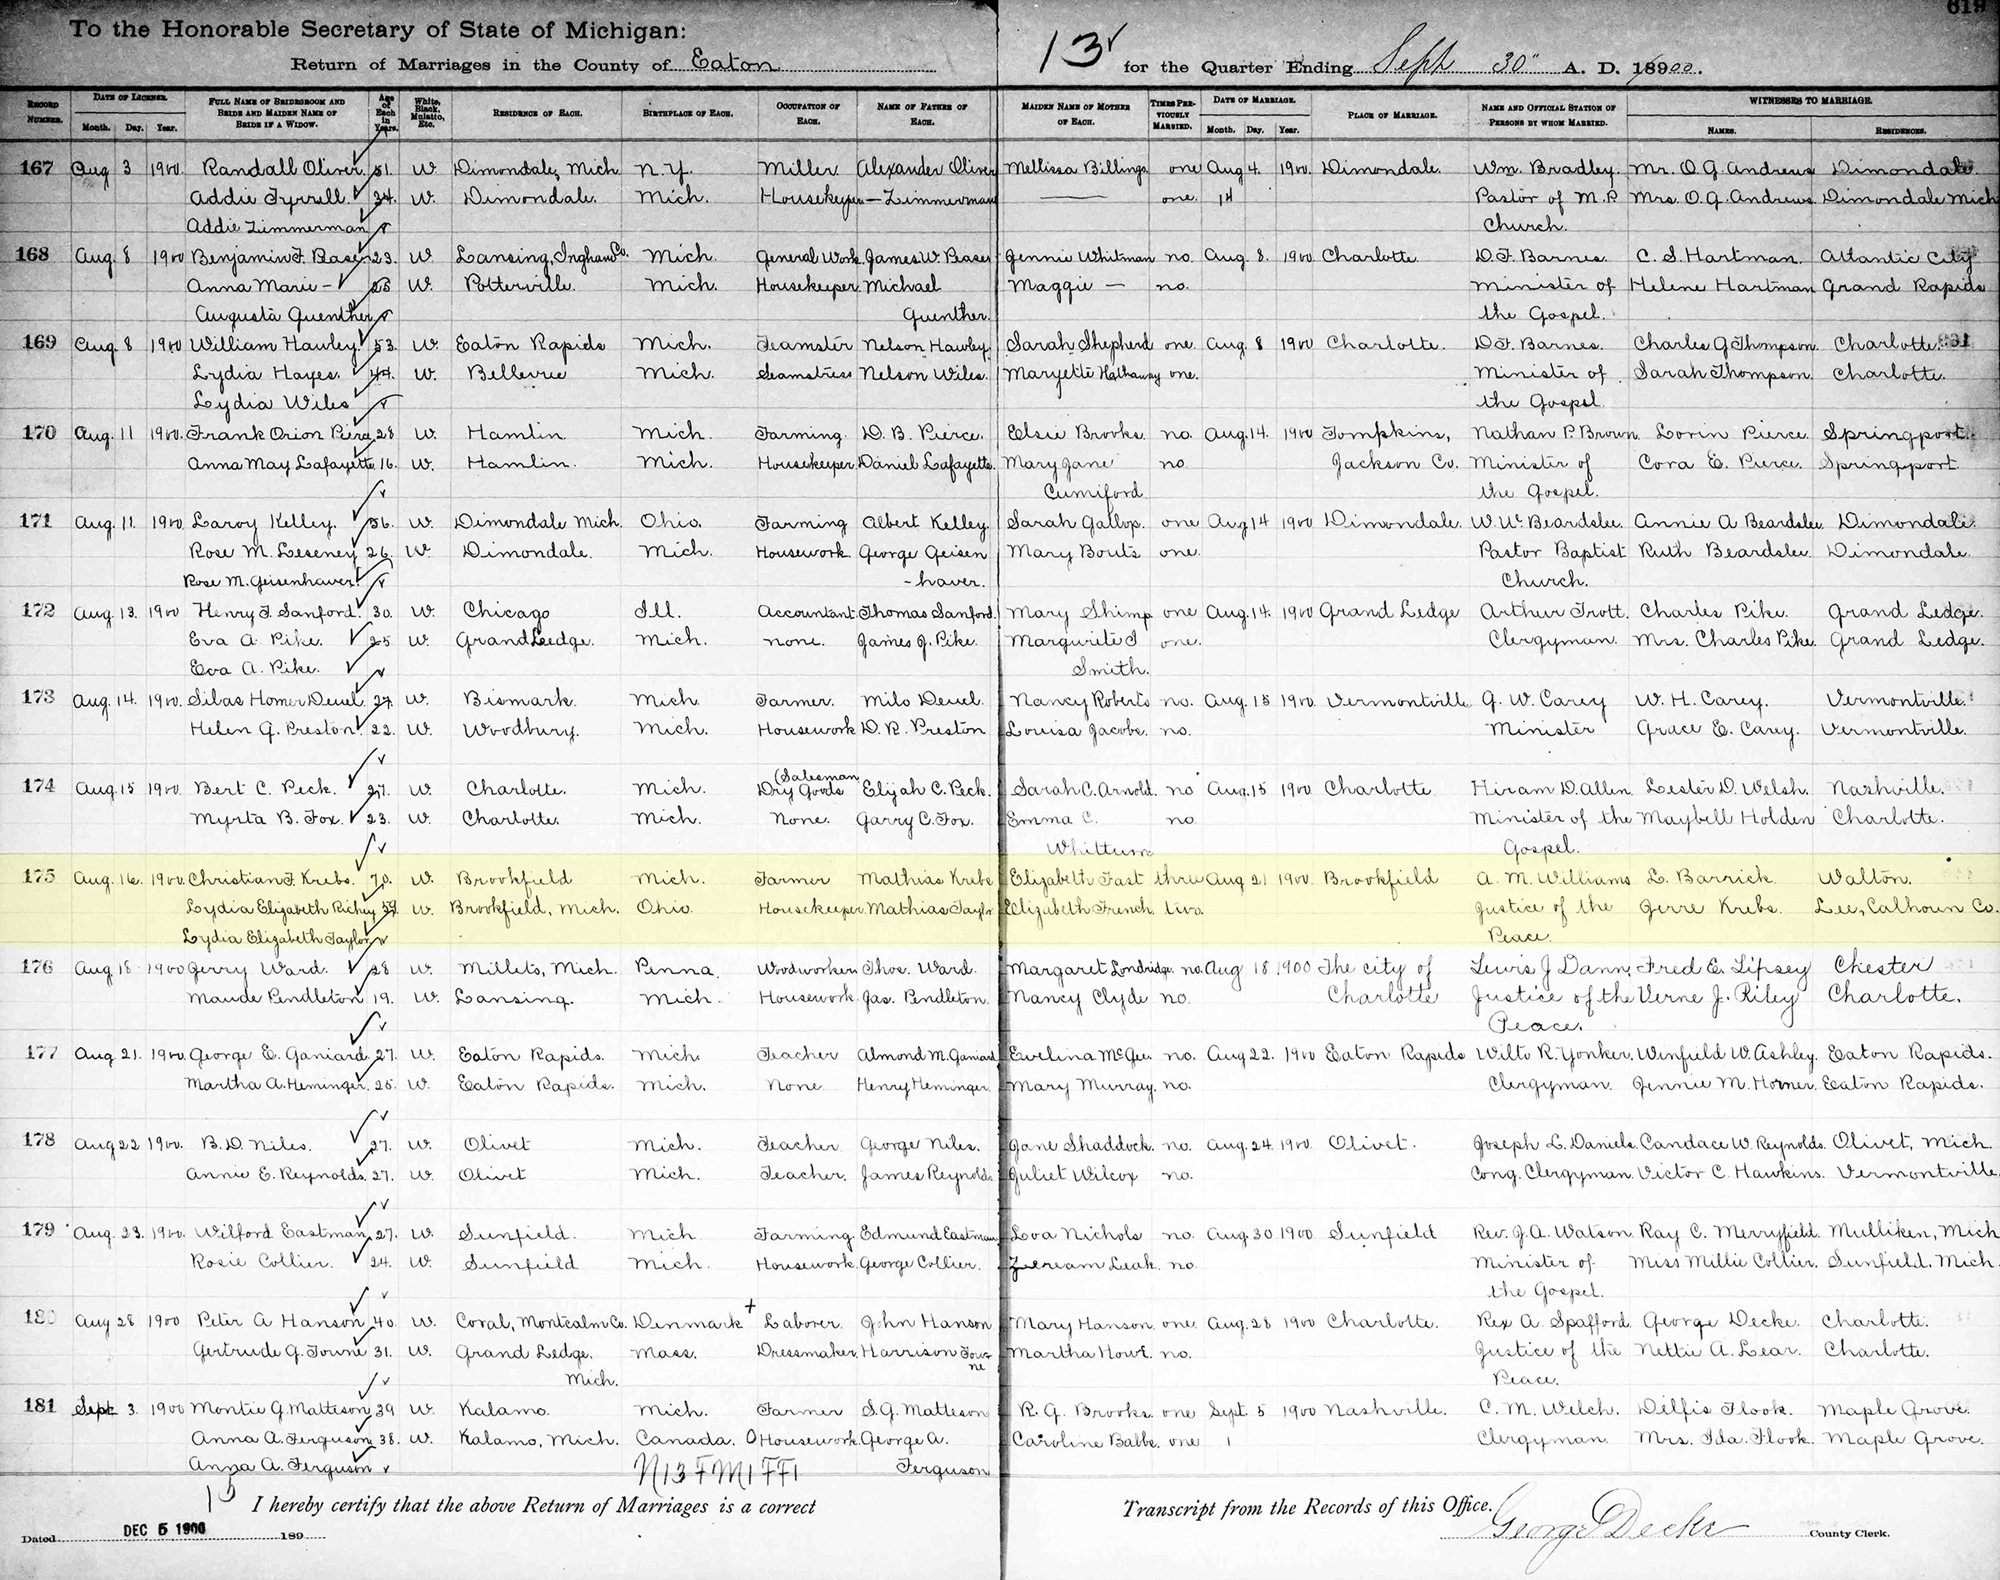 619
To the Honorable Secretary of State of Michigan:
Return of Marriages in the County of Eaton
13 for the Quarter Ending Sept 30" A. D. 18900.
RECORD NUMBER. DATE OF LICENSE. Month. Day. Year. FULL NAME OF BRIDEGROOM AND BRIDE AND MAIDEN NAME OF BRIDE IF A WIDOW. Age of Each in Years. White, Black, Mulatto, Etc. RESIDENCE OF EACH. BIRTHPLACE OF EACH. OCCUPATION OF EACH. NAME OF FATHER OF EACH. MAIDEN NAME OF MOTHER OF EACH. TIMES PREVIOUSLY MARRIED. DATE OF MARRIAGE. Month. Day. Year. PLACE OF MARRIAGE. NAME AND OFFICIAL STATION OF PERSONS BY WHOM MARRIED. WITNESSES TO MARRIAGE. NAMES. RESIDENCES.
167 Aug 3 1900. Randall Oliver 51. W. Dimondale, Mich. N.Y. Miller Alexander Oliver Mellissa Billings one Aug 4. 1900 Dimondale. Wm. Bradley. Mr. O G Andrews Dimondale.
Addie Tyrrell. 34. W. Dimondale. Mich. Housekeeper — Zimmerman — one. 14 Pastor of M.P. Mrs O.G. Andrews Dimondale Mich
Addie Zimmerman Church.
168 Aug. 8 1900 Benjamin F. Baser 23. W. Lansing, Ingham Co. Mich. General Work James W. Baser Jennie Whitman no. Aug. 8. 1900 Charlotte. D.F. Barnes. C. S. Hartman. Atlantic City
Anna Marie - W. Potterville. Mich. Housekeeper. Michael Maggie — no. Minister of Helene Hartman Grand Rapids
Augusta Guenther Guenther. the Gospel.
169 Aug. 8 1900 William Hawley. 53. W. Eaton Rapids Mich. Teamster Nelson Hawley. Sarah Shepherd one. Aug. 8 1900 Charlotte. D.F. Barnes. Charles G Thompson. Charlotte.
Lydia Hayes. 44. W. Bellevue Mich. Seamstress Nelson Wiles. Maryette Hathaway one. Minister of Sarah Thompson. Charlotte.
Lydia Wiles the Gospel.
170 Aug. 11 1900. Frank Orion Pierce 28 W. Hamlin. Mich. Farming. D. B. Pierce. Elsie Brooks. no. Aug. 14. 1900 Tompkins, Nathan P. Brown. Lorin Pierce. Springport.
Anna May Lafayette. 16. W. Hamlin. Mich. Housekeeper Daniel Lafayette. Mary Jane no Jackson Co. Minister of Cora E. Pierce. Springport
Cumiford the Gospel.
171 Aug. 11. 1900 Laroy Kelley. 36. W. Dimondale Mich. Ohio. Farming Albert Kelley. Sarah Gallop. one Aug 14 1900 Dimondale. W. W. Beardslee. Annie A Beardslee. Dimondale.
Rose M. Leseney 26. W. Dimondale. Mich. Housework. George Geisen Mary Bouts one. Pastor Baptist Ruth Beardslee. Dimondale.
Rose M. Geisenhaver. -haver. Church.
172 Aug. 13. 1900 Henry F. Sanford. 30. W. Chicago Ill. Accountant. Thomas Sanford. Mary Shimp one Aug. 14. 1900 Grand Ledge Arthur Trott. Charles Pike. Grand Ledge.
Eva A. Pike. 25 W. Grand Ledge. Mich. none. James J. Pike. Margurite J one. Clergyman. Mrs. Charles Pike. Grand Ledge.
Eva A. Pike. Smith.
173 Aug. 14. 1900. Silas Homer Deuel. 27. W. Bismark. Mich. Farmer. Milo Deuel. Nancy Roberts no. Aug. 15 1900 Vermontville G. W. Carey W. H. Carey. Vermontville.
Helen G. Preston. 22. W. Woodbury. Mich. Housework D. R. Preston Louisa Jacobs. no. Minister Grace E. Carey. Vermontville.
(Salesman
174 Aug. 15 1900. Bert C. Peck. 27. W. Charlotte. Mich. Dry Goods Elijah C. Peck. Sarah C. Arnold. no Aug. 15 1900 Charlotte Hiram D. Allen. Lester D. Welsh. Nashville.
Myrta B. Fox. 23. W. Charlotte. Mich. None. Garry C. Fox. Emma C. no. Minister of the Maybell Holden Charlotte.
Whittum Gospel.
175 Aug. 16. 1900. Christian F. Krebs. 70. W. Brookfield Mich. Farmer Mathias Krebs Elizabeth Fast three Aug 21 1900. Brookfield A. M. Williams L. Barrick. Walton.
Lydia Elizabeth Richey 59 W. Brookfield, Mich. Ohio. Housekeeper. Mathias Taylor Elizabeth French. two. Justice of the Jerre Krebs. Lee, Calhoun Co.
Lydia Elizabeth Taylor Peace.
176 Aug 18 1900 Jerry Ward. 28 W. Millets, Mich. Penna. Woodworkers Thos. Ward. Margaret Londridge. no. Aug 18 1900 The city of Lewis J Dann, Fred E. Lipsey Chester
Maude Pendleton 19. W. Lansing. Mich. Housework. Jas. Pendleton. Nancy Clyde no. Charlotte Justice of the Verne J. Riley Charlotte.
Peace.
177 Aug 21. 1900. George E. Ganiard. 27. W. Eaton Rapids. Mich. Teacher Almond M. Ganiard Evelina McGee. no. Aug 22. 1900 Eaton Rapids Wilto R. Yonker. Winfield W. Ashley. Eaton Rapids.
Martha A. Heminger. 25. W. Eaton Rapids. Mich. None Henry Heminger. Mary Murray. no. Clergyman. Jennie M. Horner. Eaton Rapids.
178 Aug 22 1900. B. D. Niles. 27. W. Olivet Mich. Teacher George Niles. Jane Shaddock. no. Aug. 24. 1900. Olivet. Joseph L. Daniels. Candace W. Reynolds. Olivet, Mich.
Annie E. Reynolds. 27. W. Olivet Mich. Teacher. James Reynolds Juliet Wilcox no. Cong. Clergyman. Victor C. Hawkins. Vermontville.
179 Aug. 23. 1900. Wilford Eastman 27. W. Sunfield. Mich. Farming. Edmund Eastman Lova Nichols no. Aug. 30 1900 Sunfield Rev. J. A. Watson. Ray C. Merryfield. Mulliken, Mich
Rosie Collier. 24. W. Sunfield Mich. Housework. George Collier. Leak. no. Minister of Miss Millie Collier. Sunfield, Mich.
the Gospel.
180 Aug 28 1900 Peter A Hanson 40. W. Coral, Montcalm Co. Denmark + Laborer. John Hanson Mary Hanson. one. Aug. 28 1900 Charlotte. Rex A. Spafford. George Decke. Charlotte.
Gertrude G. Towne 31. W. Grand Ledge. Mass. Dressmaker. Harrison Tow- Martha Howe. no. Justice of the Nettie A. Lear. Charlotte.
Mich. ne Peace.
181 Sept 3. 1900 Montie G. Matteson 39 W. Kalamo. Mich. Farmer S. G. Matteson R. G. Brooks. one Sept. 5 1900 Nashville. C. M. Welch. Dilfis Flook. Maple Grove.
Anna A. Ferguson 38. W. Kalamo, Mich. Canada. 0 Housework. George A. Caroline Babbe. one 1 Clergyman. Mrs. Ida. Flook. Maple Grove.
Anna A. Ferguson N13FM1FF1 Ferguson
15 I hereby certify that the above Return of Marriages is a correct Transcript from the Records of this Office.
Dated DEC 5 1900 189 George Decke County Clerk.